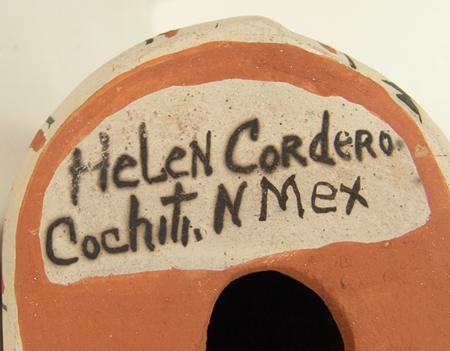 Helen Cordero.
Cochiti, N Mex